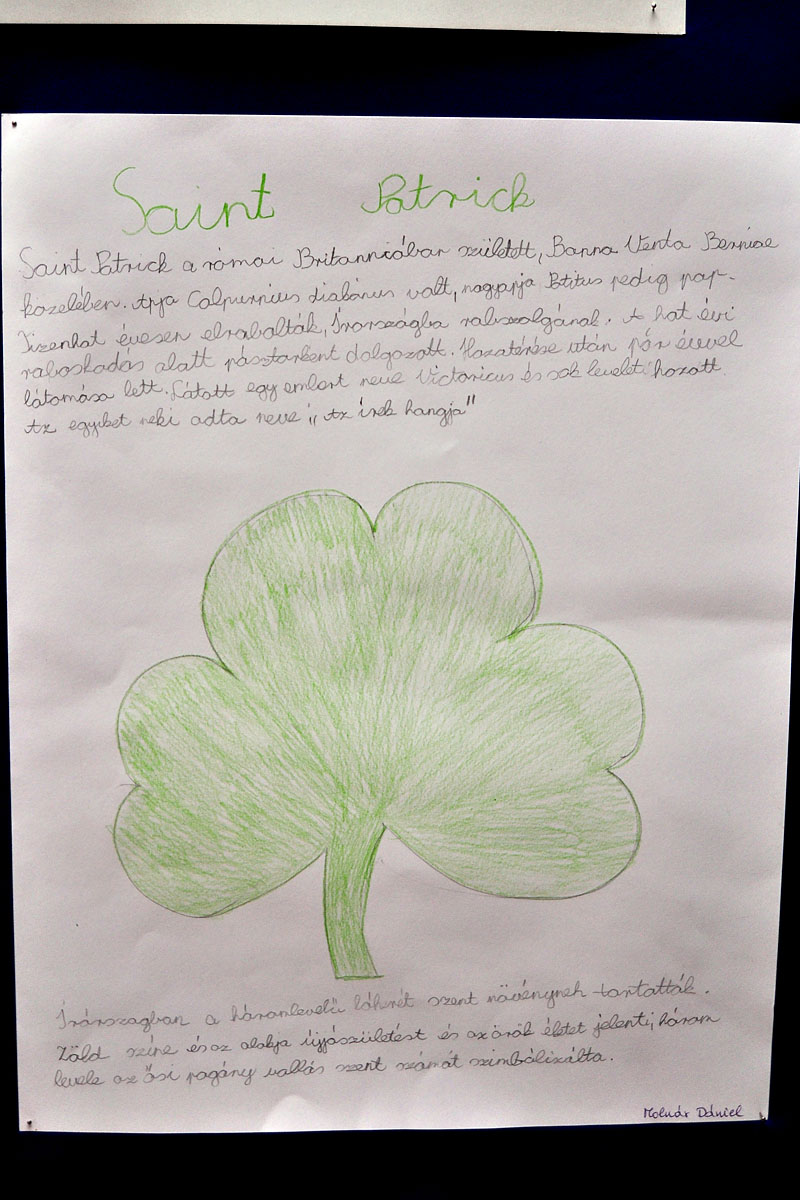 Saint Patrick
Saint Patrick a római Britanniában született, Banna Venta Berniae
közelében. Apja Calpurnius diakónus volt, nagyapja Potitus pedig pap.
Tizenhat évesen elrabolták, Írországba rabszolgának. A hat évi
raboskodás alatt pásztorként dolgozott. Hazatérése után pár évvel
látomása lett. Látott egy embert neve Victoricus és sok levelet hozott.
Az egyiket neki adta neve „Az írek hangja"
Írországban a háromlevelű lóherét szent növénynek tartották.
Zöld színe és az alakja újjászületést és az örök életet jelenti, három
levele az ősi pogány vallás szent számát szimbólizálta.
Molnár Dániel